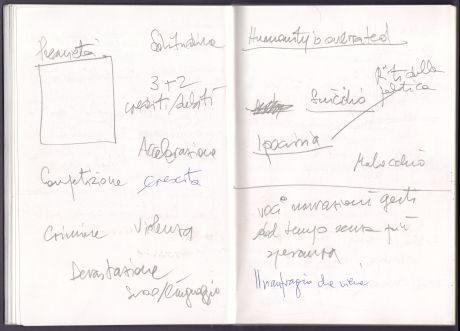 Solitudine
3 + 2
crediti/debiti
Accelerazione
Competizione
crescita
Crimine
violenza
Devastazione
Humanity is overrated
Riti della
politica
Suicidio
Ipocrisia
Malocchio
voci narrazioni gesti
dal tempo senza più
speranza
Il naufragio che viene